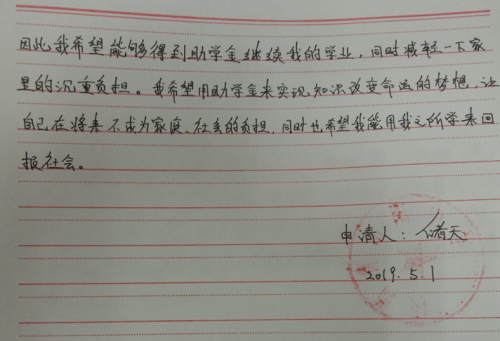 因此我希望能够得到助学金继续我的学业，同时减轻一下家
里的沉重负担。我希望用助学金来实现知识改变命运的梦想，让
自己在将来不成为家庭、社会的负担，同时也希望我能用我之所学来回
报社会。
申请人：储天
2019.5.1